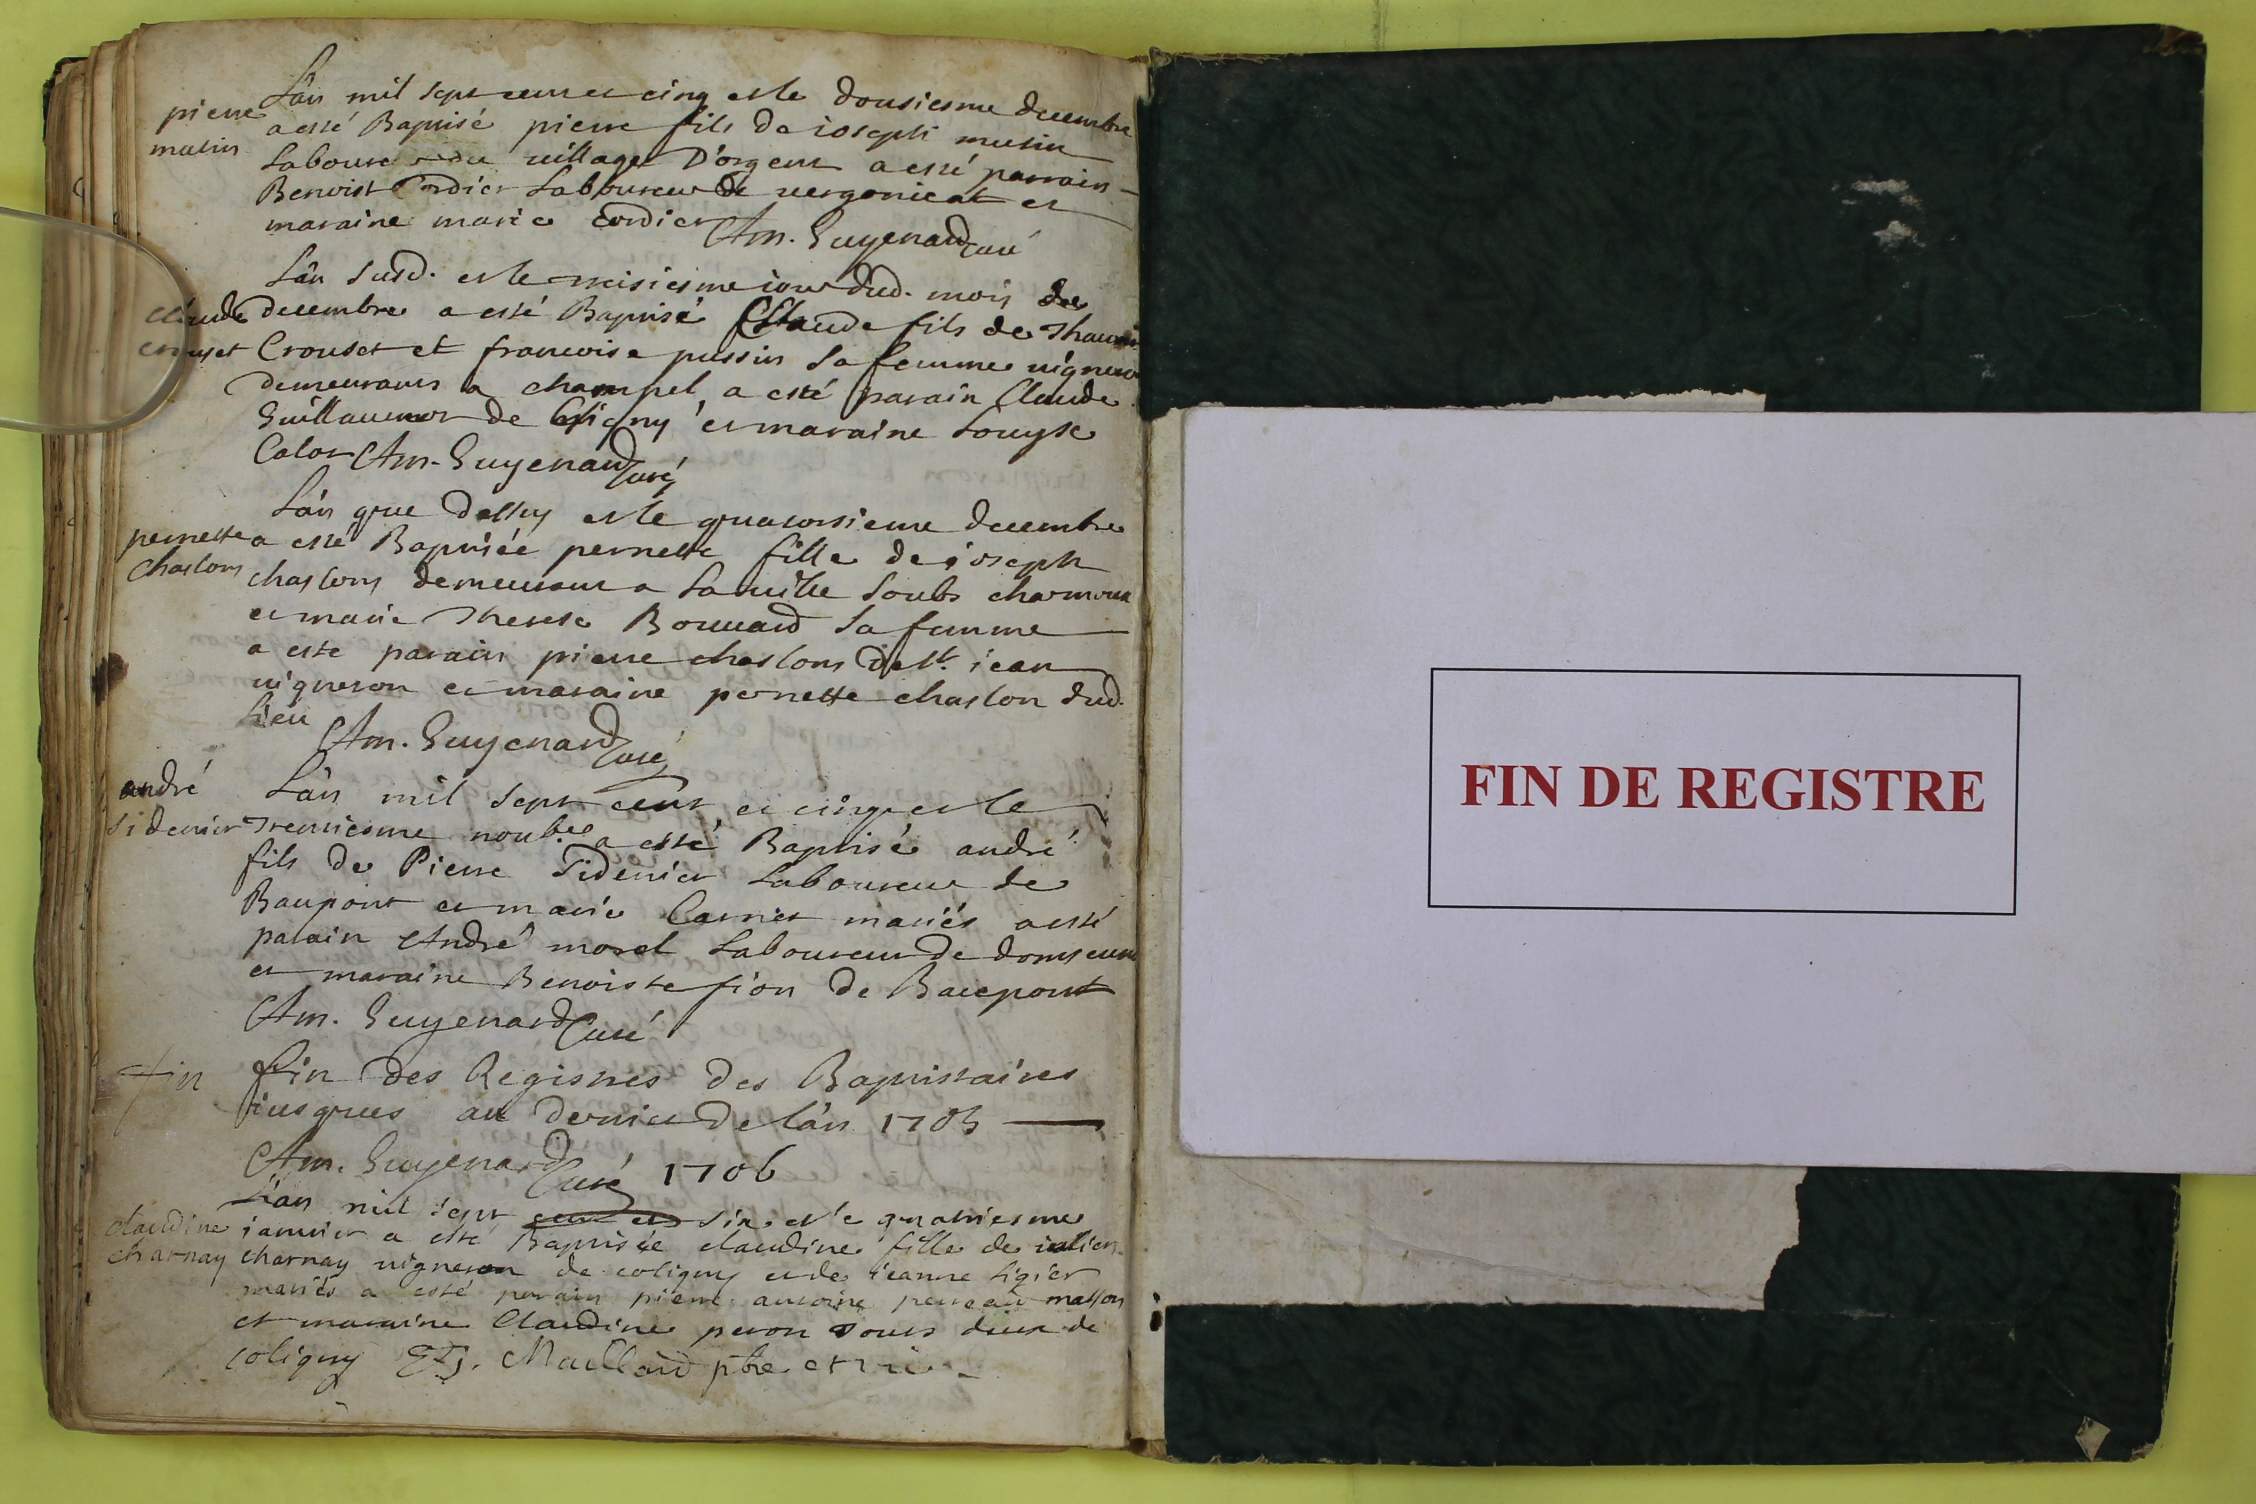 pierre
mutin
L'an mil sept cent et cinq et le dousiesme decembre
a esté Baptisé pierre fils de ioseph mutin
Laboureur du village D'orgent a esté parrain
Benoist Cordier Laboureur de vergonieat et
maraine marie Cordier Am. Guyenard Curé
claude
crouset
L'an susd. et le treisiesme iour dud. mois de
decembre a esté Baptisé Claude fils de
Crouset et francoise pussin sa femme vigneron
demeurants a champel, a esté parain Claude
Guillaumot de Coligny et maraine Louyse
Colon Am. Guyenard Curé
pernette
chaslons
L'an que dessus et le quatorsieme decembre
a esté Baptisée pernette fille de ioseph
chaslons demeurant a Laville soubs charmoux
et marie Therese Bouuard sa femme
a este parain pierre chaslons de st. iean
vigneron et maraine pernette chaslon dud.
lieu Am. Guyenard Curé
andré
sidenier
L'an mil sept cent et cinq et le
trentiesme noubre a esté Baptisé andré
fils de Pierre Sidenier Laboureur de
Baupont et marie Carnier mariés a esté
parain André morel Laboureur de domseure
et maraine Benoiste fion de Baupont
Am. Guyenard Curé
Fin
fin Des Registres Des Baptistaires
iusques au Dernier De l'an 1705
Am. Guyenard Curé 1706
claudine
charnay
L'an mil sept cent et six et le quatriesme
ianuier a esté Baptisée claudine fille de iulien
charnay vigneron de coligny et de ieanne ligier
mariés a esté parain pierre antoine perreau masson
et maraine Claudine peron tous deux de
coligny Maillard pbre et vic
FIN DE REGISTRE